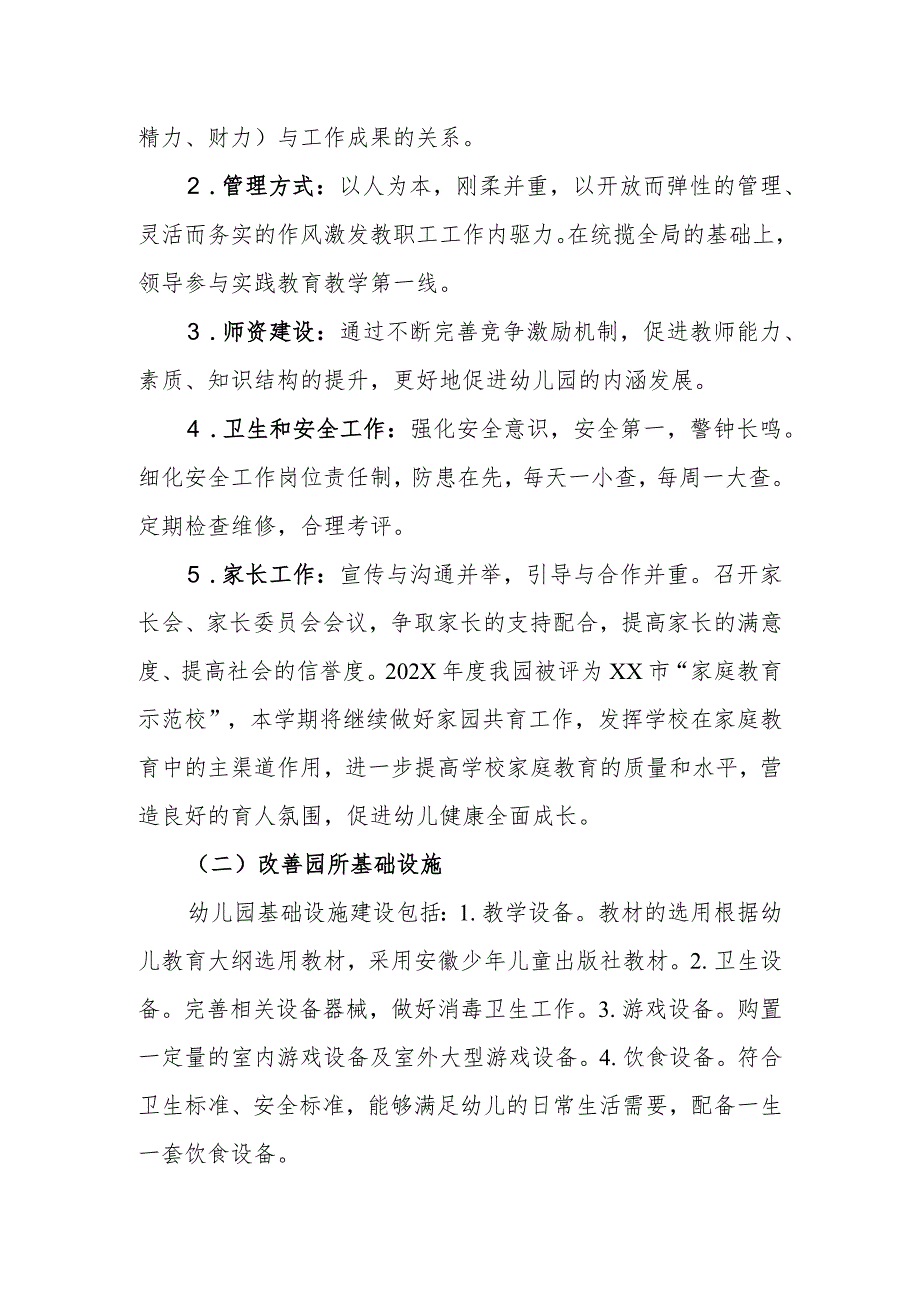 精力、财力）与工作成果的关系。
2.管理方式：以人为本，刚柔并重，以开放而弹性的管理、
灵活而务实的作风激发教职工工作内驱力。在统揽全局的基础上，
领导参与实践教育教学第一线。
3.师资建设：通过不断完善竞争激励机制，促进教师能力、
素质、知识结构的提升，更好地促进幼儿园的内涵发展。
4.卫生和安全工作：强化安全意识，安全第一，警钟长鸣。
细化安全工作岗位责任制，防患在先，每天一小查，每周一大查。
定期检查维修，合理考评。
5.家长工作：宣传与沟通并举，引导与合作并重。召开家
长会、家长委员会会议，争取家长的支持配合，提高家长的满意
度、提高社会的信誉度。202X 年度我园被评为 XX 市“家庭教育
示范校”，本学期将继续做好家园共育工作，发挥学校在家庭教
育中的主渠道作用，进一步提高学校家庭教育的质量和水平，营
造良好的育人氛围，促进幼儿健康全面成长。
（二）改善园所基础设施
幼儿园基础设施建设包括：1. 教学设备。教材的选用根据幼
儿教育大纲选用教材，采用安徽少年儿童出版社教材。2. 卫生设
备。完善相关设备器械，做好消毒卫生工作。3. 游戏设备。购置
一定量的室内游戏设备及室外大型游戏设备。4. 饮食设备。符合
卫生标准、安全标准，能够满足幼儿的日常生活需要，配备一生
一套饮食设备。